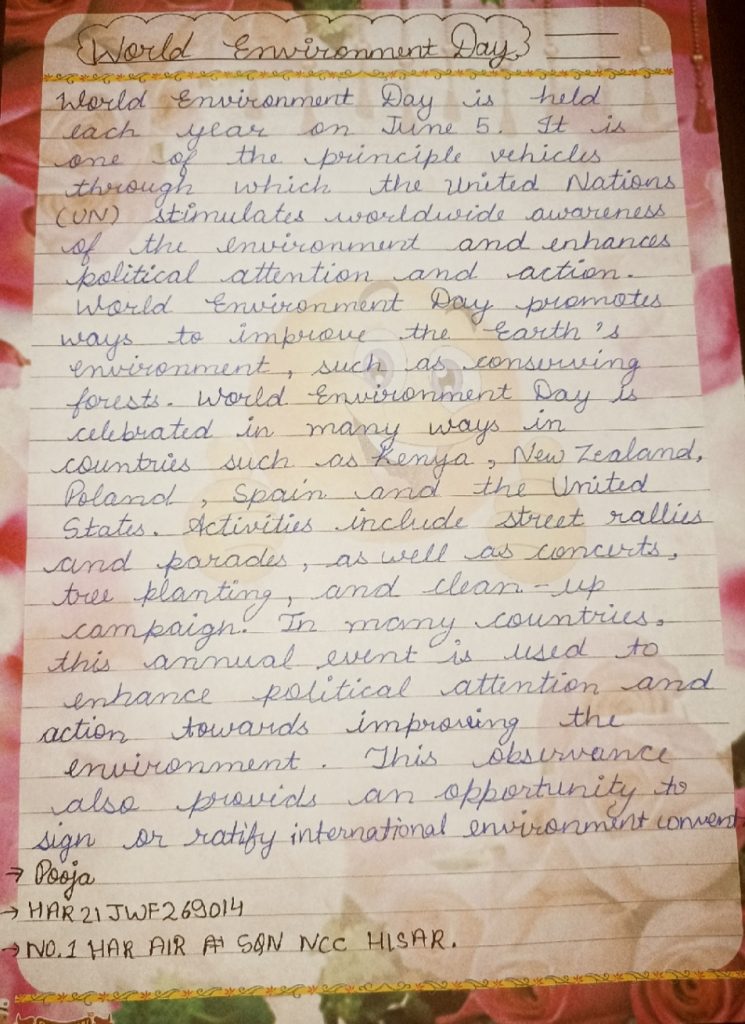 World Environment Day
World Environment Day is held
each year on June 5. It is
one of the principle vehicles
through which the United Nations
(UN) stimulates worldwide awareness
of the environment and enhances
political attention and action.
World Environment Day promotes
ways to improve the Earth's
environment, such as conserving
forests. World Environment Day is
celebrated in many ways in
countries such as Kenya, New Zealand,
Poland, Spain and the United
States. Activities include street rallies
and parades, as well as concerts,
tree planting, and clean-up
campaign. In many countries,
this annual event is used to
enhance political attention and
action towards improving the
environment. This observance
also provids an opportunity to
sign or ratify international environment convent
→ Pooja
→ HAR21JWF269014
→ NO.1 HAR AIR SQN NCC HISAR.